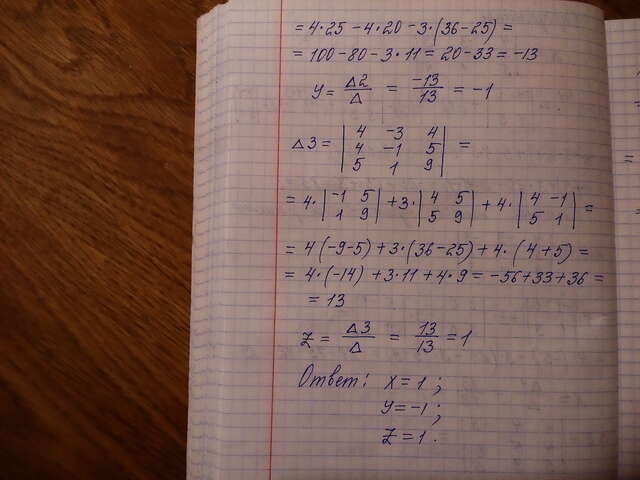 = 4·25 - 4·20 - 3·(36-25) =
= 100-80-3·11 = 20-33 = -13
y = Δ2/Δ = -13/13 = -1
Δ3 = | 4 -3 4 |
| 4 -1 5 | =
| 5 1 9 |
= 4·| -1 5 | + 3·| 4 5 | + 4·| 4 -1 | =
| 1 9 | | 5 9 | | 5 1 |
= 4(-9-5)+3·(36-25)+4·(4+5) =
= 4·(-14) + 3·11 + 4·9 = -56+33+36 =
= 13
Z = Δ3/Δ = 13/13 = 1
Ответ: x = 1 ;
y = -1 ;
Z = 1 .